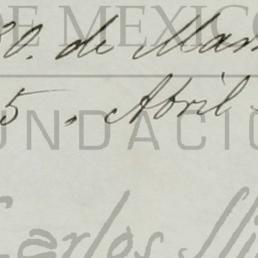 DE MEXICO
30. de Mar
5. Abril
FUNDACIÓ
Carlos Sli